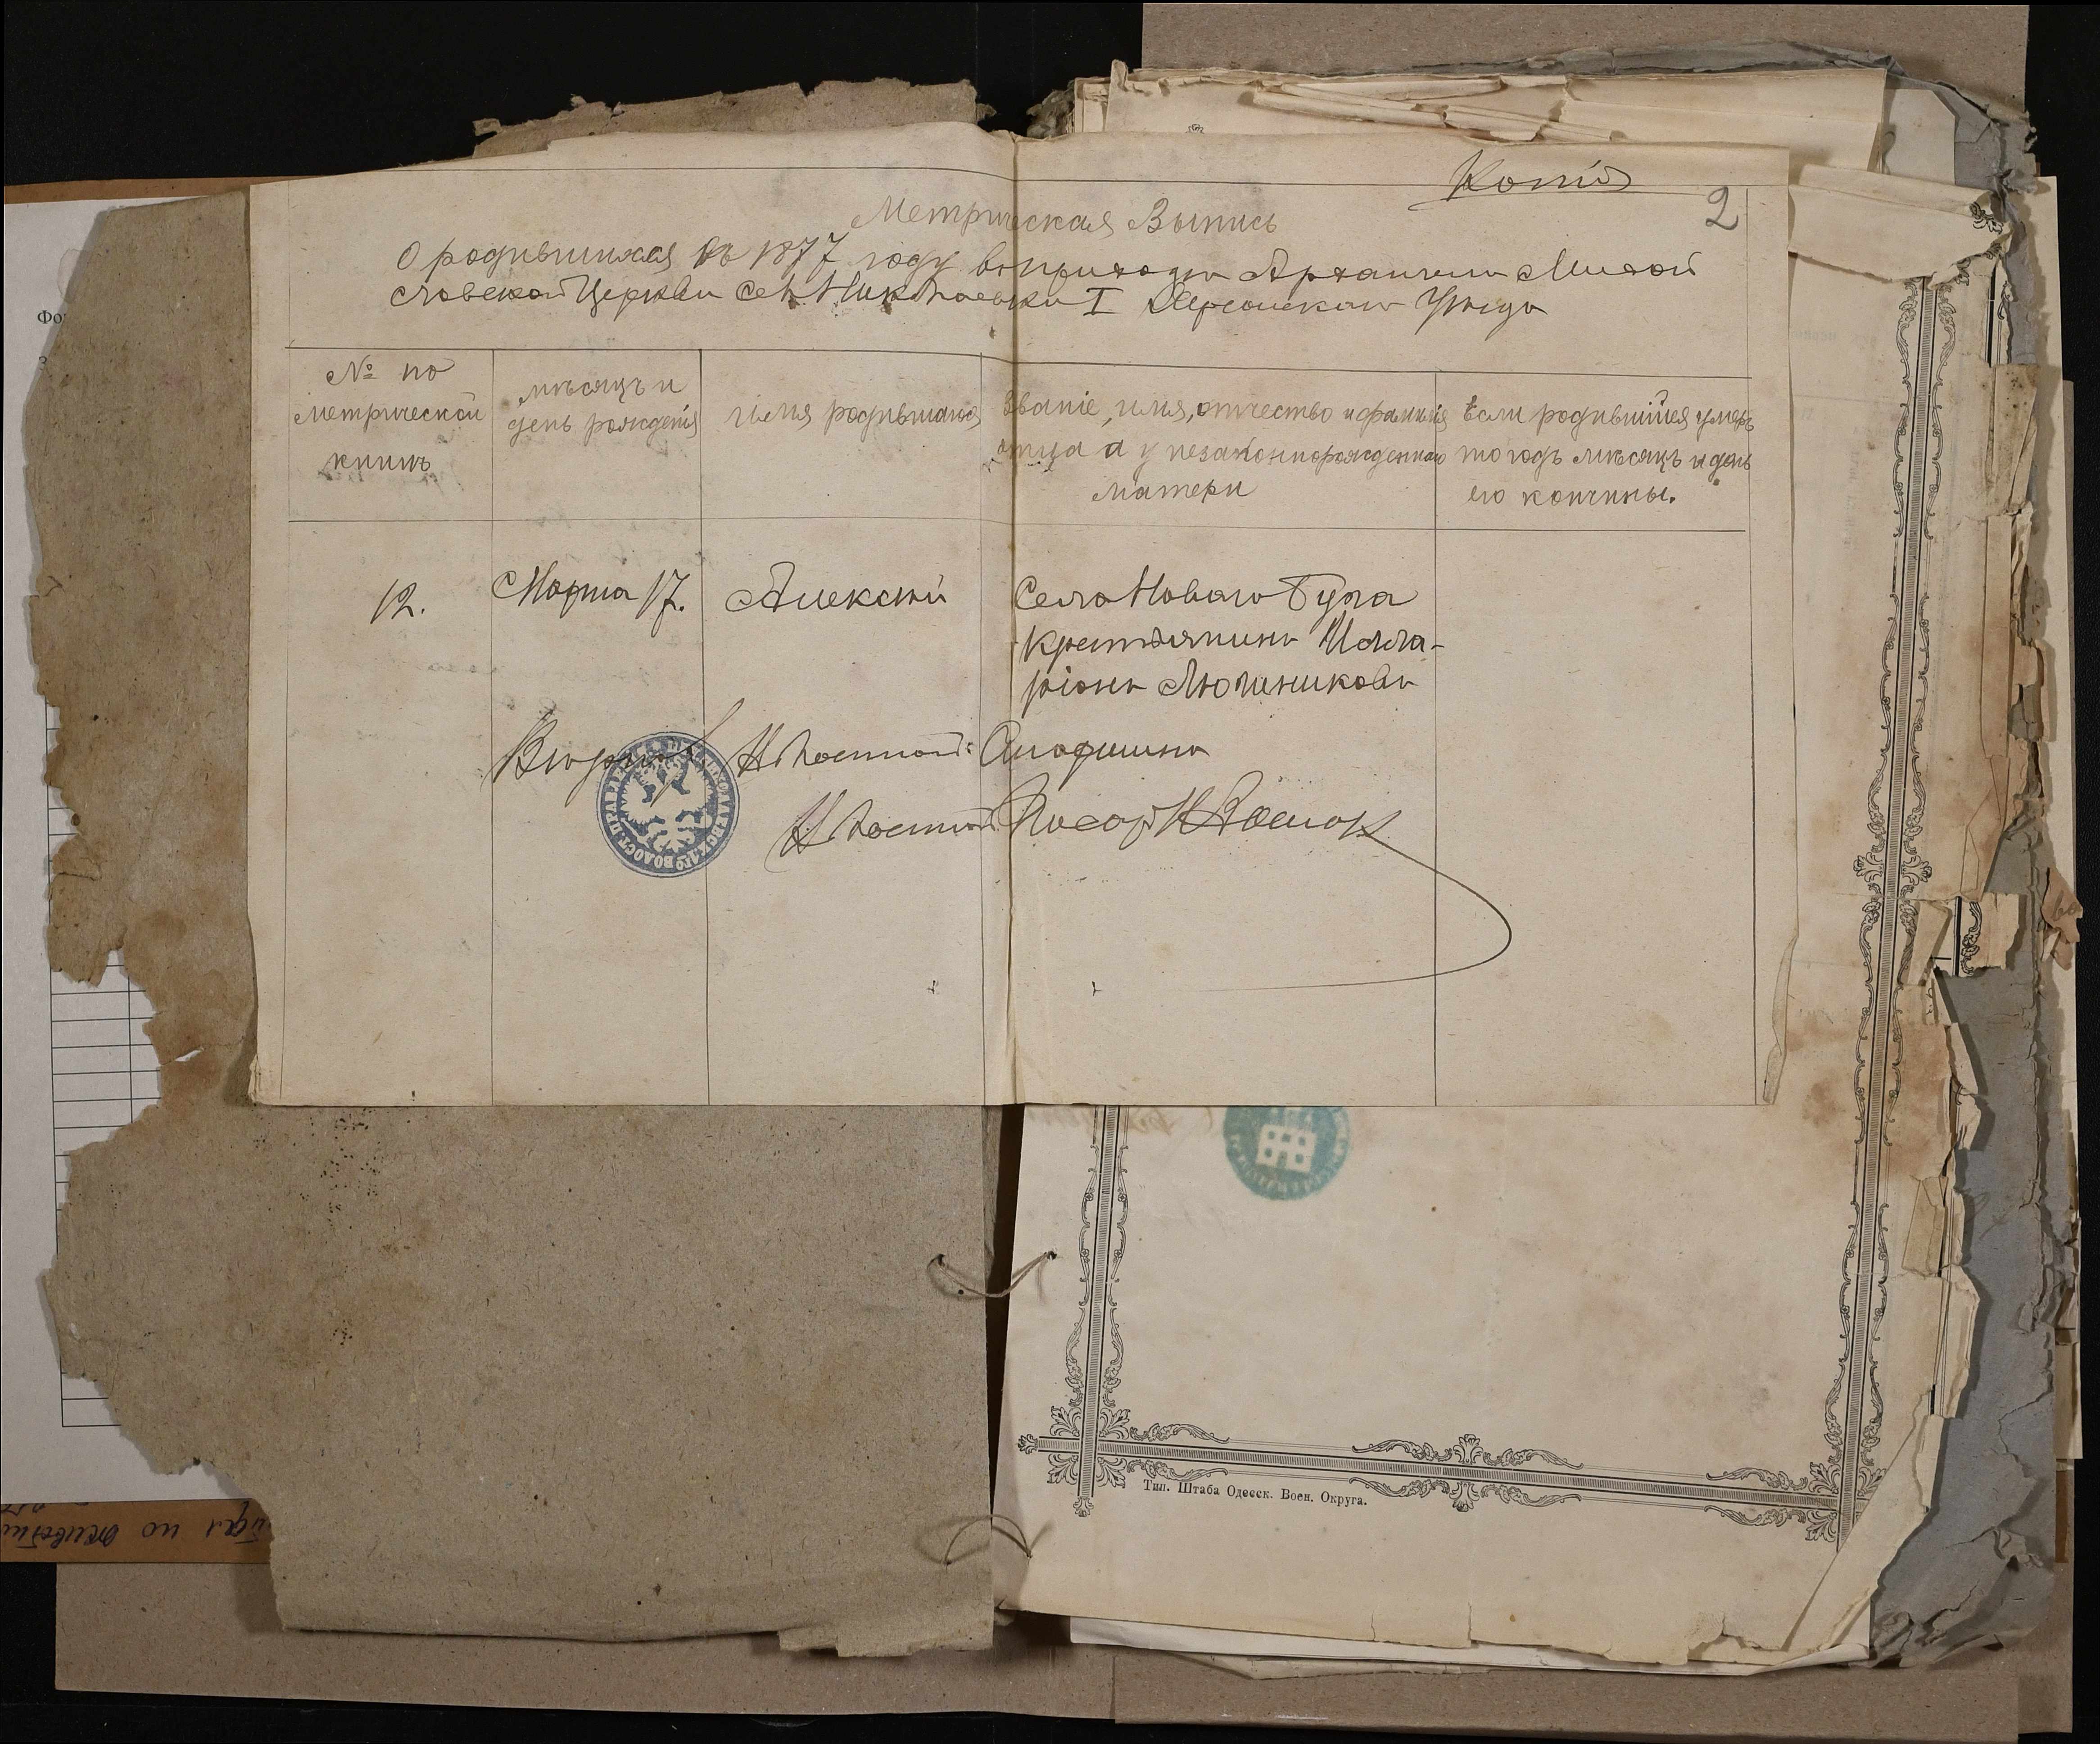 Копія
2
Метрическая Выпись
О родившихся въ 1877 году въ приходѣ Архангело Михай
ловской Церкви села Николаевки I Херсонскаго Уѣзда
№ по метрической книгѣ
мѣсяцъ и день рожденія
Имя родившагося
Званіе, имя, отчество и фамилія отца а у незаконнорожденнаго матери
Если родившійся умеръ то годъ мѣсяцъ и день его кончины.
12.
Марта 17.
Алексѣй
Села Новаго Буга
крестьянинъ Илла-
ріонъ
Волостной
Писарь
Тип. Штаба Одесск. Воен. Округа.